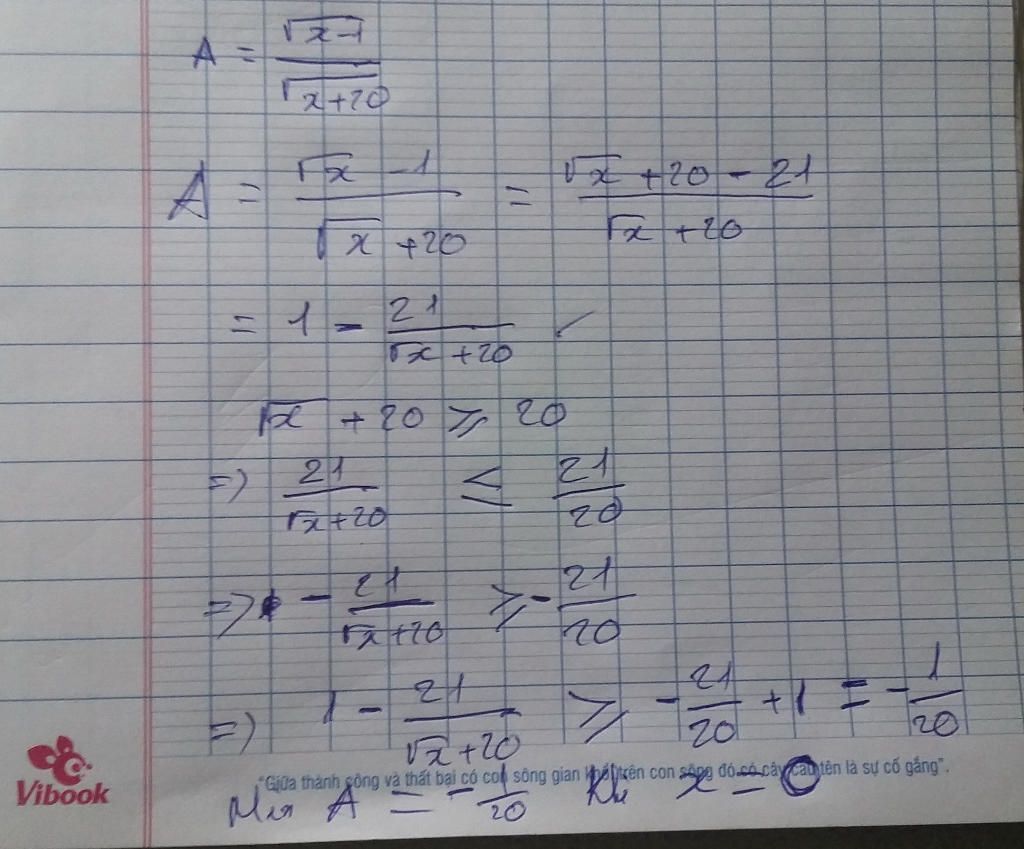 A = √(x-1) / √(x+20)
A = (√x - 1) / (√x + 20) = (√x + 20 - 21) / (√x + 20)
= 1 - 21 / (√x + 20) ✓
√x + 20 ≥ 20
=> 21 / (√x + 20) ≤ 21/20
=> - 21 / (√x + 20) ≥ - 21/20
=> 1 - 21 / (√x + 20) ≥ - 21/20 + 1 = - 1/20
"Giữa thành công và thất bại có con sông gian khổ, trên con sông đó có cây cầu tên là sự cố gắng".
Vibook
Min A = - 1/20 khi x = 0